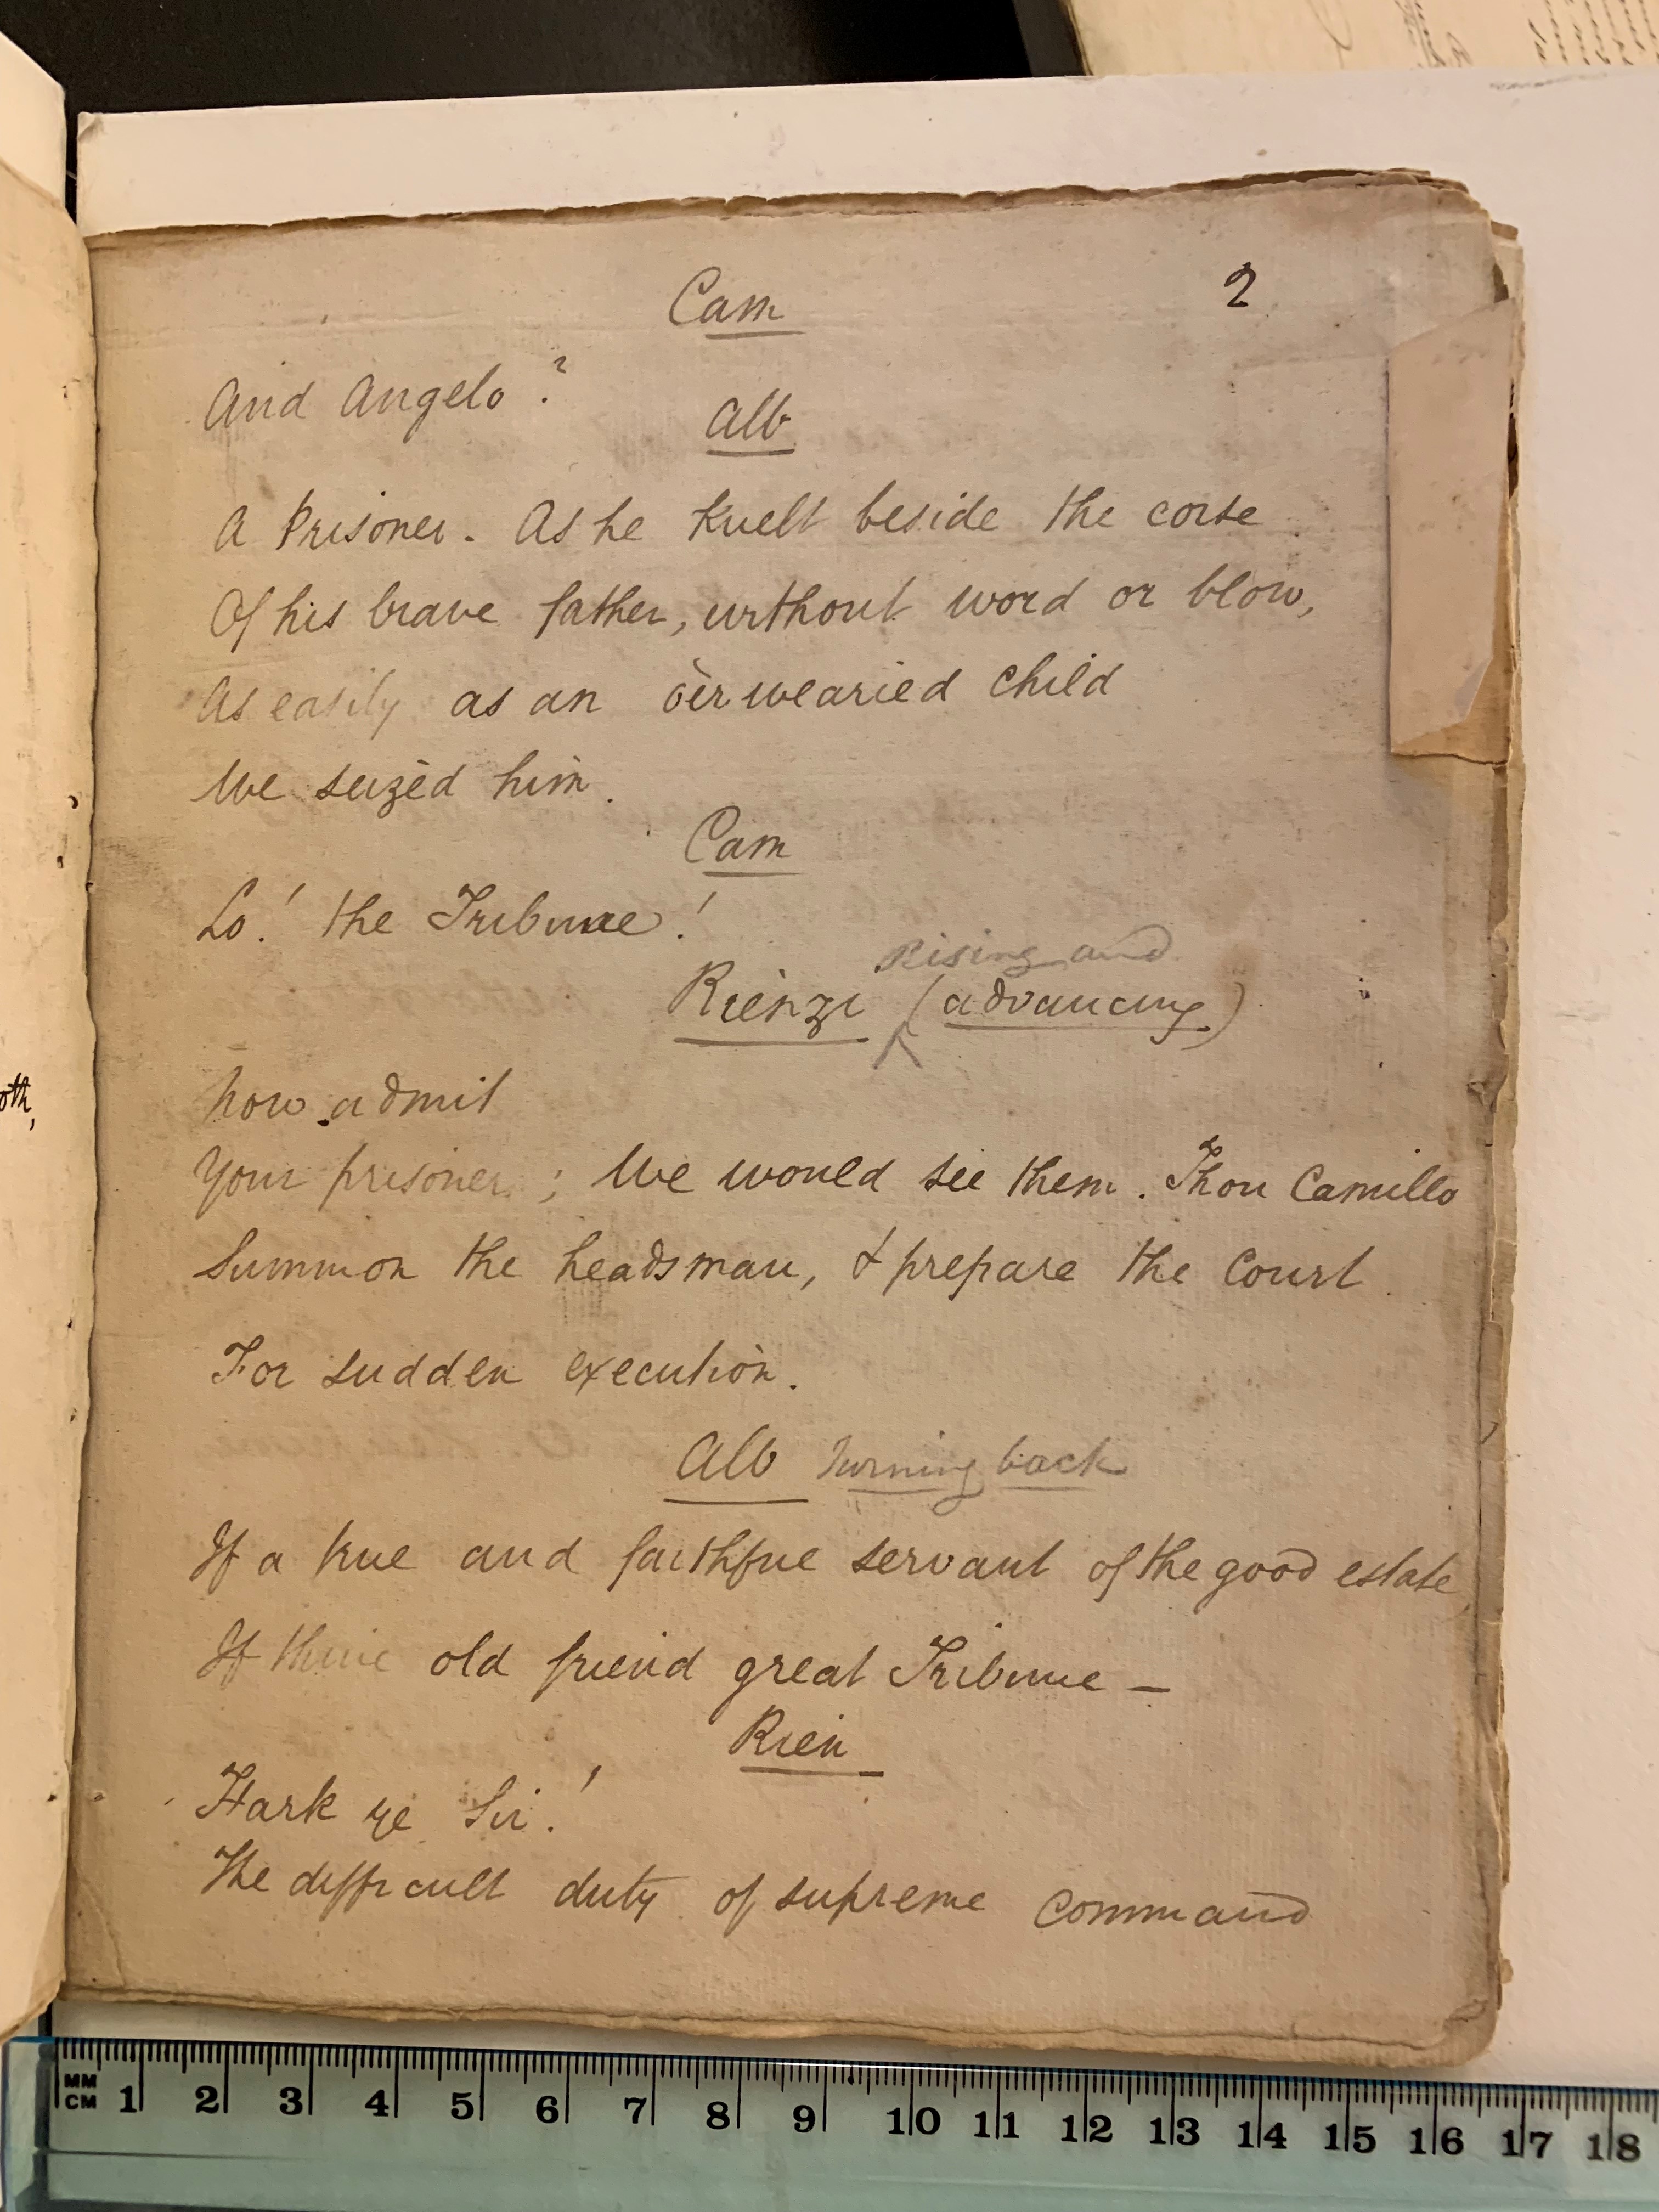 2
Cam
And Angelo?
Alb
A Prisoner. As he knelt beside the corse
Of his brave father, without word or blow,
As easily as an o'erwearied child
We seized him.
Cam
Lo! the Tribune!
Rising and
Rienzi (advancing)
oth,
Now admit
Your prisoner; We would see them. Thou Camillo
Summon the headsman, & prepare the Court
For sudden execution.
Alb Turning back
If a true and faithful servant of the good estate,
If thine old friend great Tribune —
Rien
Hark ye Sir!
The difficult duty of supreme command
MM
CM 1 2 3 4 5 6 7 8 9 10 11 12 13 14 15 16 17 18